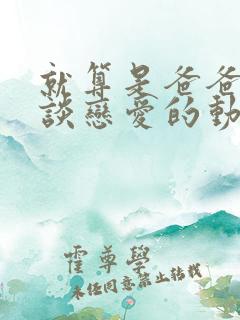 就算是爸爸
談戀愛的動
霍尊學
未經同意禁止轉載